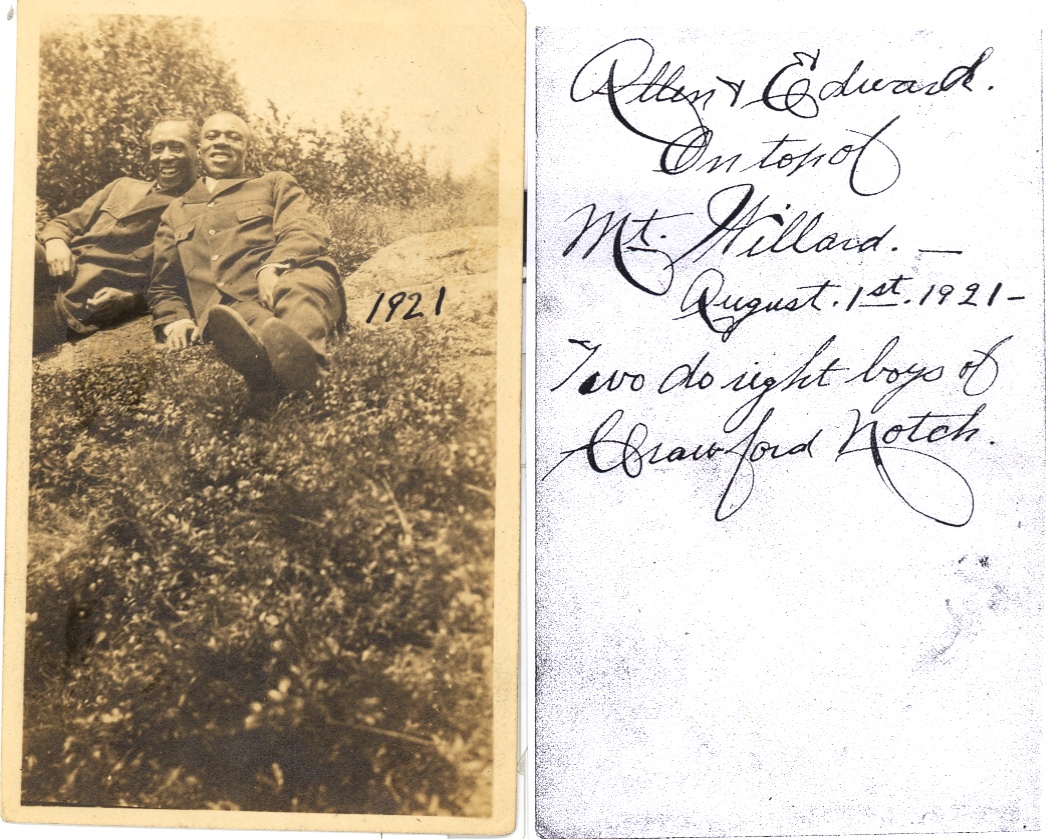 1921
Allen & Edward.
On top of
Mt. Willard. —
August. 1st. 1921 -
Two do right boys of
Crawford Notch.